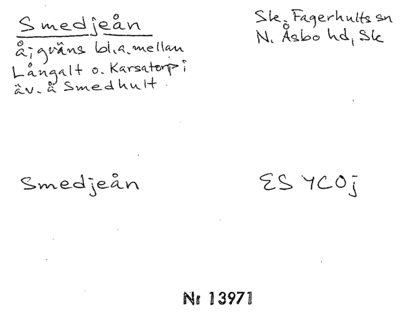 Smedjeån
Sk. Fagerhults sn
å; gräns bl.a. mellan
N. Åsbo hd, Sk
Långalt o. Karsatorp i
äv. å Smedhult
Smedjeån
ES YCOj
Nr 13971